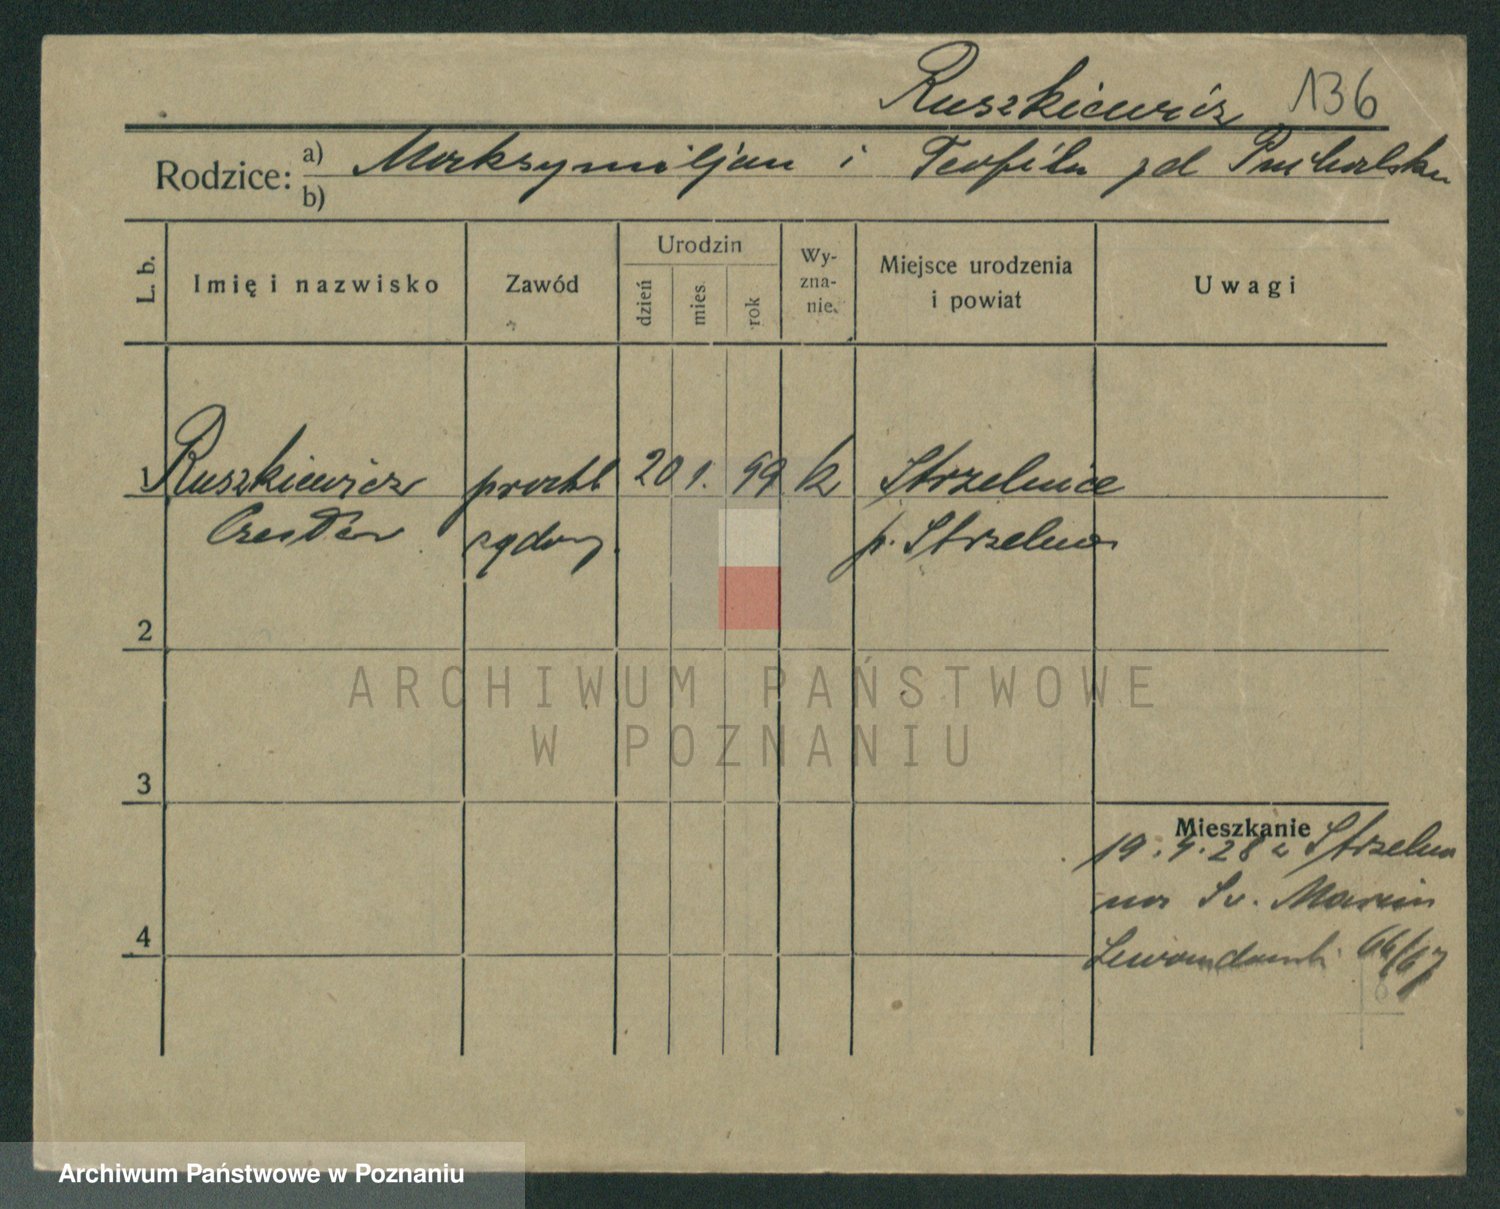 Ruszkiewicz 136
Rodzice: a) Maksymiljan i Teofila zd Pucholska
b)
L. b. Imię i nazwisko Zawód Urodzin dzień mies. rok Wy-zna-nie. Miejsce urodzenia i powiat Uwagi
1 Ruszkiewicz 20 1. 99 k Strzelnice
Czesław p. Strzelno
2
3
4
Mieszkanie
19.4.28 z Strzelna
na Sw. Marcin
66/67
ARCHIWUM PAŃSTWOWE
W POZNANIU
Archiwum Państwowe w Poznaniu